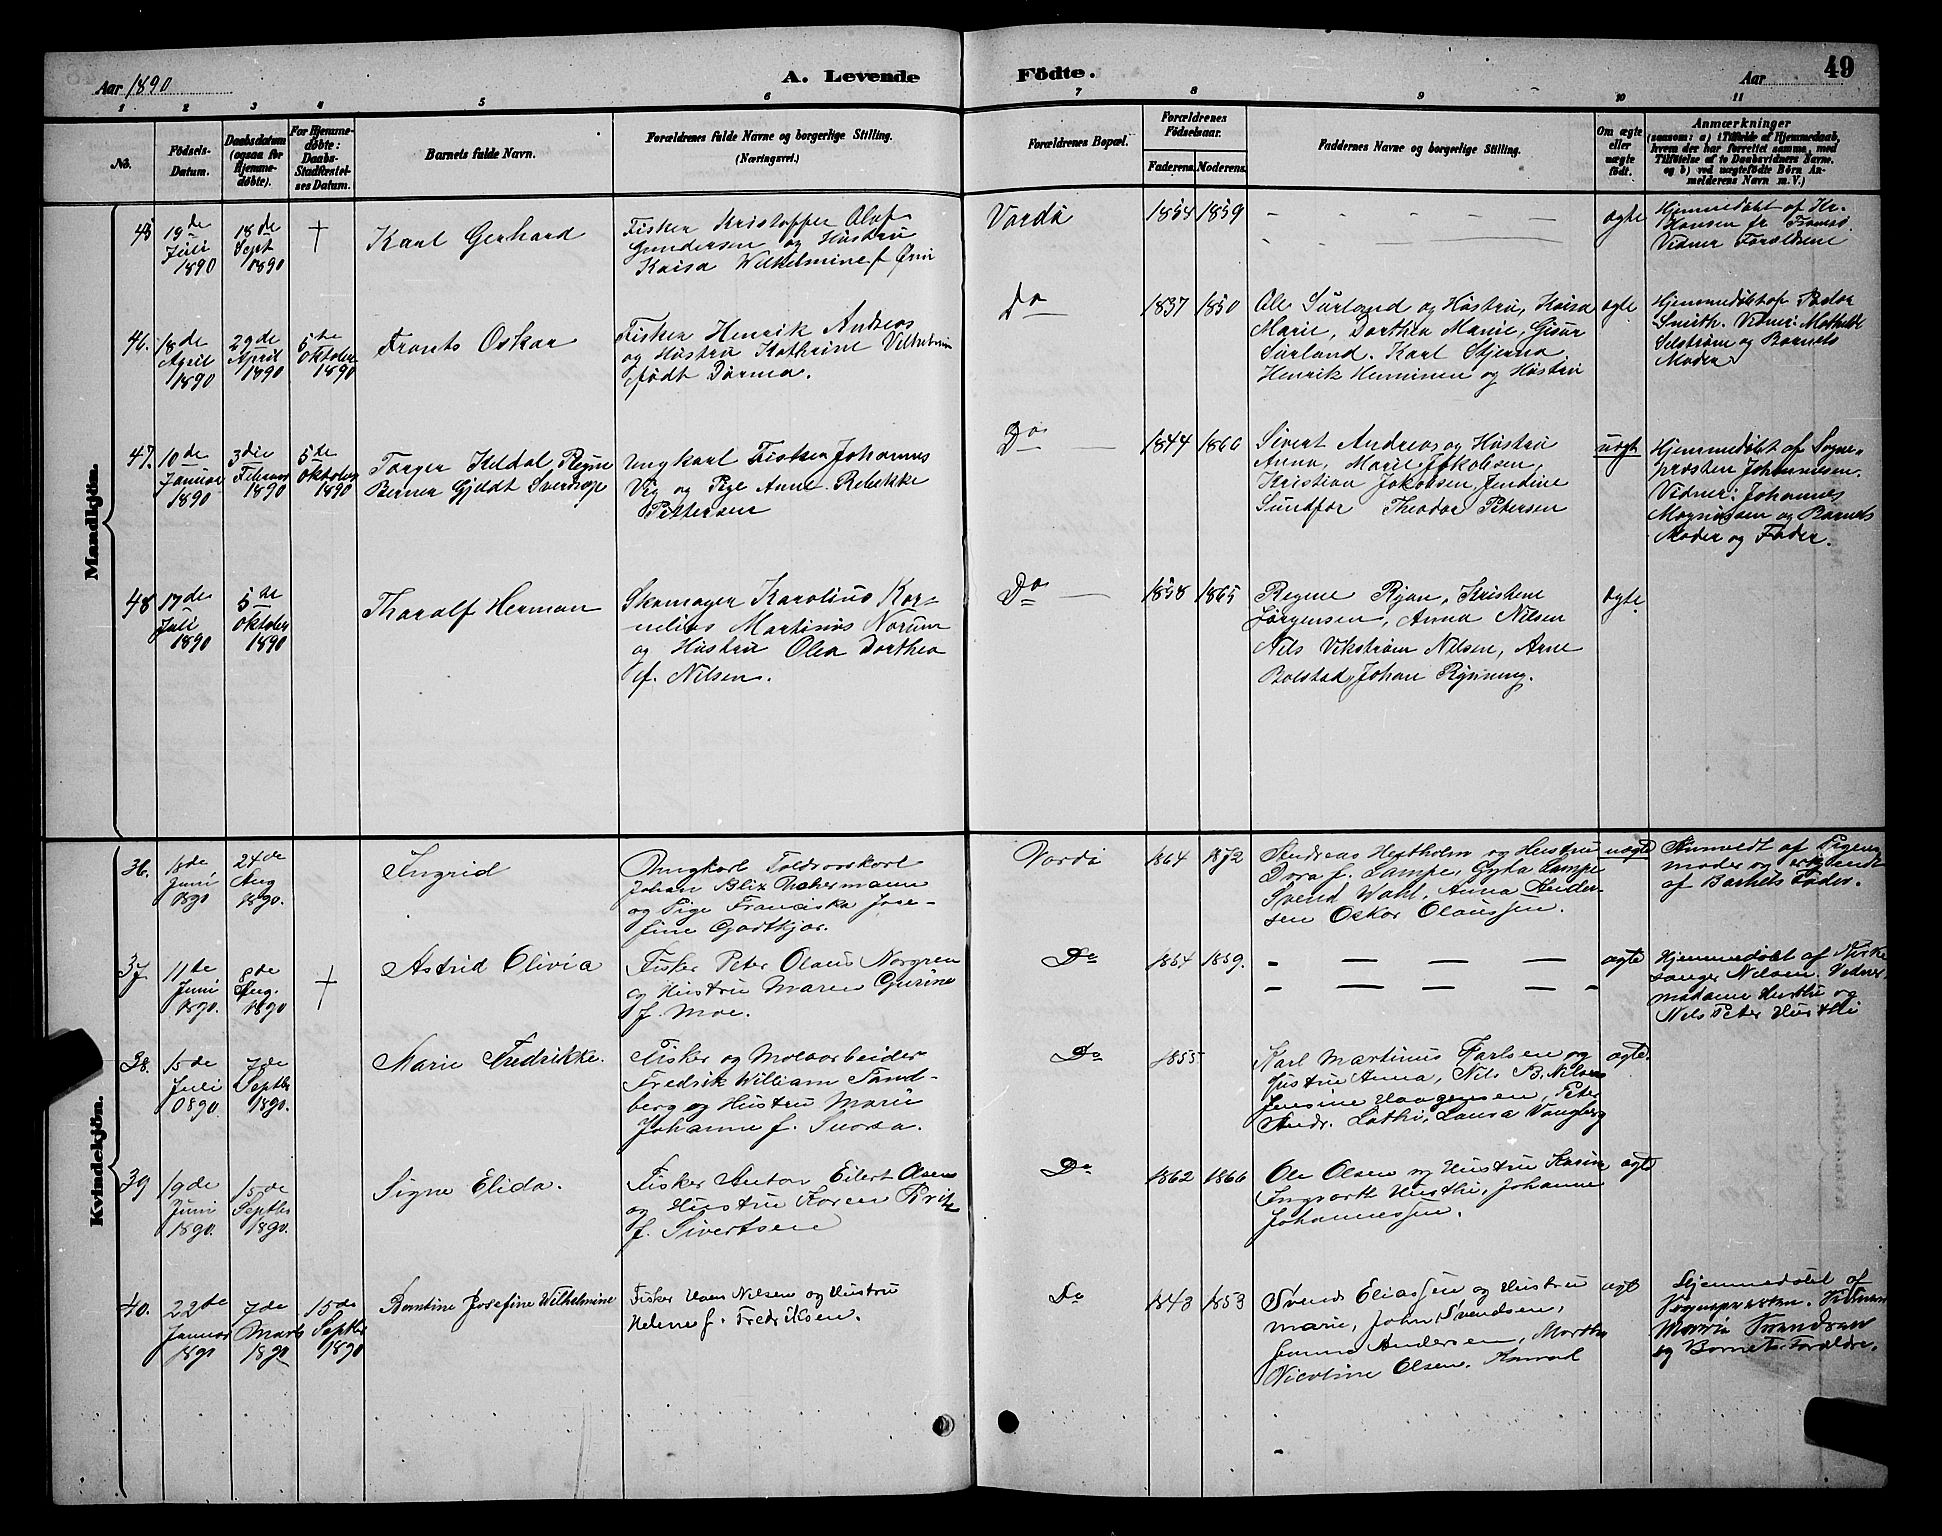 Aar 1890
A. Levende
Födte.
Aar
49
1 2 3 4 5 6 7 8 9 10 11
No.
Födsels-
Datum.
Daabsdatum
(ogsaa for
Hjemme-
døbte).
For Hjemme-
døbte:
Daabs-
Stadfæstel-
ses Datum.
Barnets fulde Navn.
Forældrenes fulde Navne og borgerlige Stilling.
(Næringsvei.)
Forældrenes Bopæl.
Forældrenes
Födselsaar.
Faderens.
Moderens.
Faddernes Navne og borgerlige Stilling.
Om ægte
eller
uægte
født.
Anmærkninger
(saasom: a) i Tilfælde af Hjemmedaab,
hvem der har forrettet samme, med
Tilföielse af to Daabsvidners Navne,
og b) ved uægtefödte Börn An-
melderens Navn m. V.)
Mandkjön.
45
19de
Juli
1890
18de
Sept
1890
†
Karl Gerhard
Fisker Kristoffer Olaf
Gundersen og Hustru
Kaisa Wilhelmine f.
Vardö
1854
1859
ægte
Hjemmedøbt af Kr.
Hansen fr Tromsø.
Vidner Forældrene
46.
18de
April
1890
29de
April
1890
5te
Oktober
1890
Frants Oskar
Fisker Henrik Andreas
og Hustru Kathrine Vilhelmin
født
Do
1837
1850
Ole Sørland og Hustru, Kaisa
Marie, Dorthea Marie, Gisur
Sørland. Karl Stjerna
Henrik Henninen og Hustru
ægte
Hjemmedøbt af Pastor
Smith. Vidner: Mathilde
Selstrøm og Barnets
Moder
47.
10de
Januar
1890
3die
Februar
1890
5te
Oktober
1890
Torger Keldal
Berner Sverdrup
Ungkarl Fisker Johannes
Vig og Pige Anne Rebekke
Pettersen
Do
1844
1866
Sivert Andreas og Hustru
Anna, Marie Jakobsen,
Kristian Jakobsen, Jendine
Sundfør Theodor Petersen
uægt
Hjemmedøbt af Sogne-
præsten Johannesen.
Vidner: Johannes
Magnussen og Barnets
Moder og Fader.
48
17de
Juli
1890
5de
Oktober
1890
Tharalf Herman
Skomager Karolius Kor-
nelius Martinus Norum
og Hustru Olea Dorthea
f. Nilsen.
Do
1858
1865
Regine Ryan, Kristine
Jørgensen, Anna Nilsen
Nils Vikstrøm Nilsen, Arne
Bolstad, Johan Rynning.
ægte
Kvindekjön.
36.
18de
Juni
1890
24de
Aug
1890.
Ingrid
Ungkarl Toldvaskarl
Johan Blix
og Pige Franciska Jose-
fine Godtkjær.
Vardö
1864
1872
Andreas Hestholm og Hustru
Dora f. Lampe, Gyda Lampe
Svend Wahl, Anna Ander-
sen Oskar Olaussen.
uægte
Anmeldt af Pigens
moder og
af Barnets Fader.
37
11te
Juni
1890.
8de
Aug.
1890
†
Astrid Olivia
Fisker Peter Olaus Norgren
og Hustru Maren Gurine
f. Moe.
Do
1854
1859.
ægte
Hjemmedøbt af Kirke
sanger Nilsen. Vidner
madame Husthi og
Nils Peter Husthi
38.
15de
Juli
1890.
7de
Septbr
1890.
Marie Fredrikke.
Fisker og Moloarbeider
Fredrik William Sand-
berg og Hustru Marie
Johanne f.
Do
1855
Karl Martinus Karlsen og
Hustru Anna, Nils B. Nilsen
Jensine Haagensen, Peter
Andr. Lothi, Laura Vangberg
ægte.
39
19de
Juni
1890.
15de
Septbr
1890.
Signe Elida.
Fisker Anton Eilert Olsen
og Hustru Karen Brit
f. Sivertsen
Do
1862
1866
Ole Olsen og Hustru Karine
Ingvart Husthi, Johanne
Johannessen.
ægt
40.
22de
Januar
1890
7de
Marts
1890
15de
Septbr
1890
Berntine Josefine Wilhelmine
Fisker Hans Nilsen og Hustru
Helene f. Fredriksen.
Do
1843
1853
Svend Eliassen og Hustru
Marie, John Svendsen,
Hanna Andersen, Marthe
Nicoline Olsen.
ægt
Hjemmedøbt af
Sognepræsten. Vidner
og Barnets Forældre.